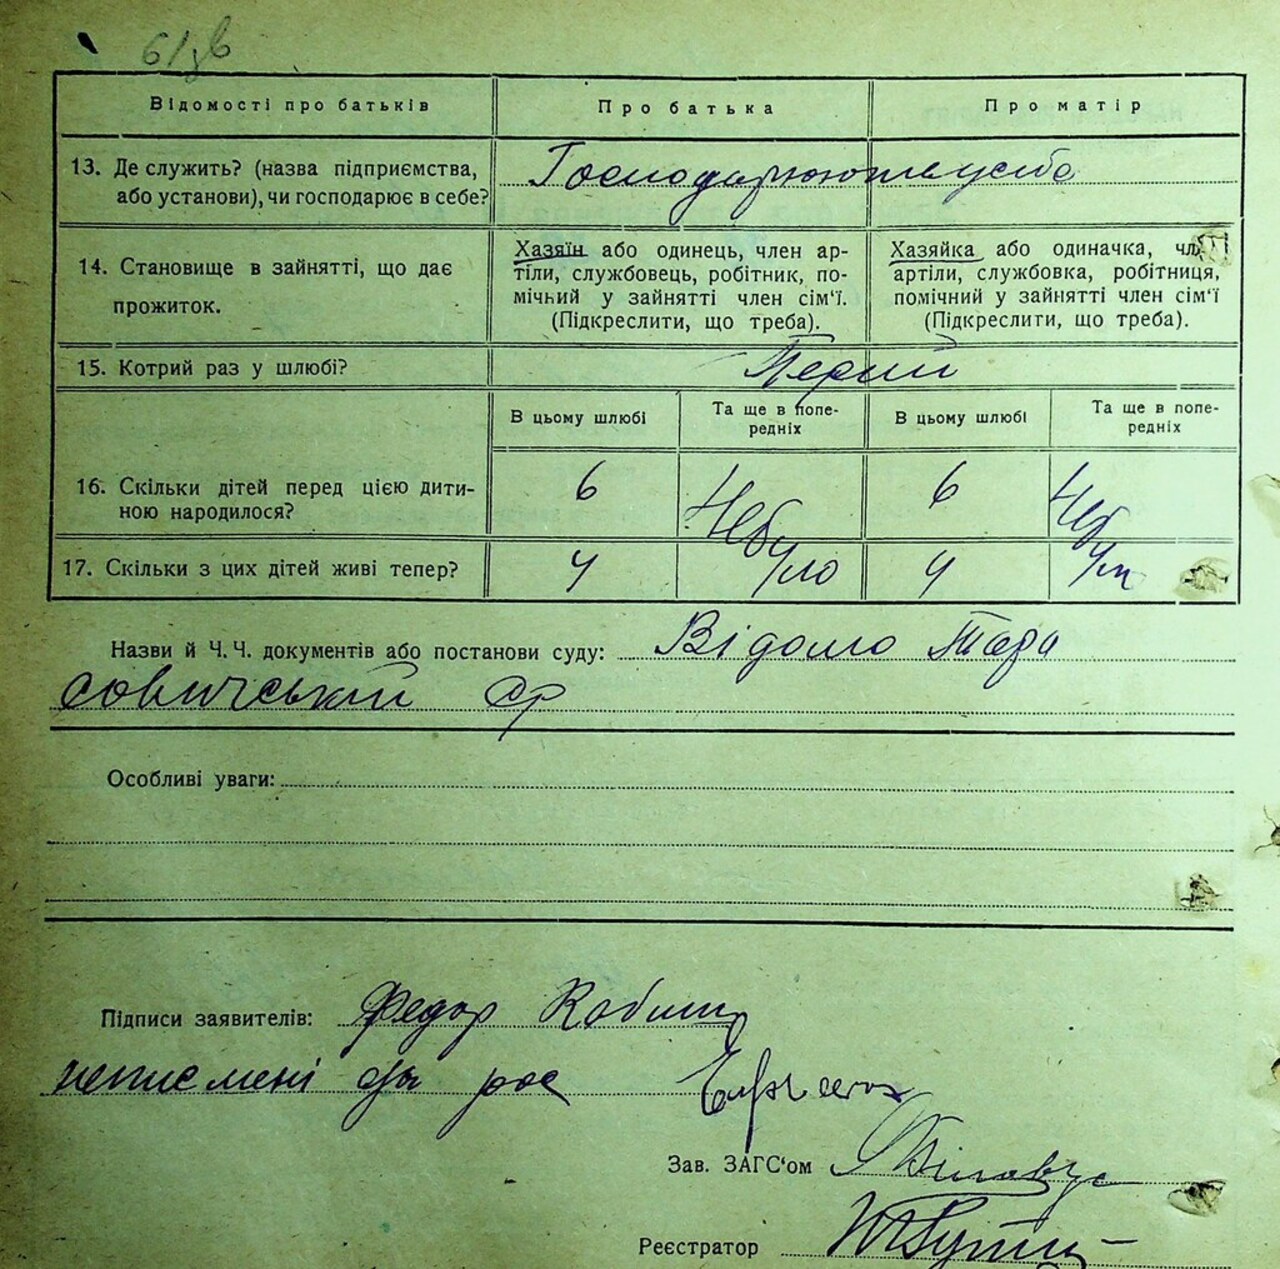 Відомості про батьків Про батька Про матір
13. Де служить? (назва підприємства, або установи), чи господарює в себе?
14. Становище в зайнятті, що дає прожиток.
Хазяїн або одинець, член ар-
тіли, службовець, робітник, по-
мічний у зайнятті член сім'ї.
(Підкреслити, що треба).
Хазяйка або одиначка, чл
артіли, службовка, робітниця,
помічний у зайнятті член сім'ї
(Підкреслити, що треба).
15. Котрий раз у шлюбі? Перший
В цьому шлюбі Та ще в попе-
редніх В цьому шлюбі Та ще в попе-
редніх
16. Скільки дітей перед цією дити-
ною народилося? 6 Не було 6 Не
17. Скільки з цих дітей живі тепер? 4 4
Назви й Ч. Ч. документів або постанови суду: Відомо Тара
совичський ср
Особливі уваги:
Підписи заявителів: Федор
неписмені
Зав. ЗАГС'ом
Реєстратор